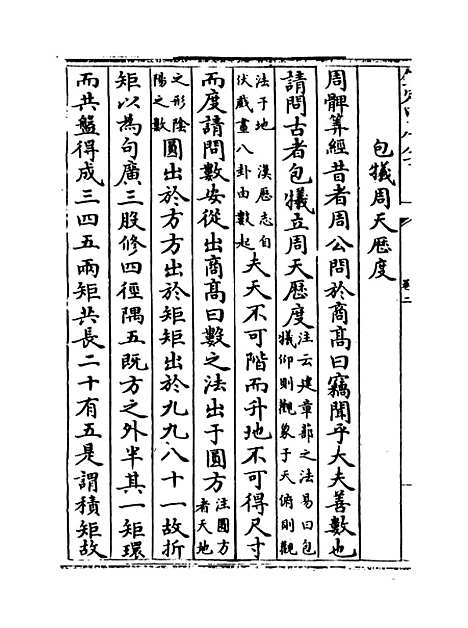 包犧周天歴度
周髀筭經昔者周公問於商髙曰竊聞乎大夫善數也
請問古者包犧立周天歴度注云建章蔀之法易曰包犧仰則觀象于天俯則觀
法于地 漢歴志自伏戲畫八卦由數起夫天不可階而升地不可得尺寸
而度請問數安從出商髙曰數之法出于圓方注圓方者天地
之形隂陽之數圓出於方方出於矩矩出於九九八十一故折
矩以為句廣三股修四徑隅五既方之外半其一矩環
而共盤得成三四五兩矩共長二十有五是謂積矩故
卷二